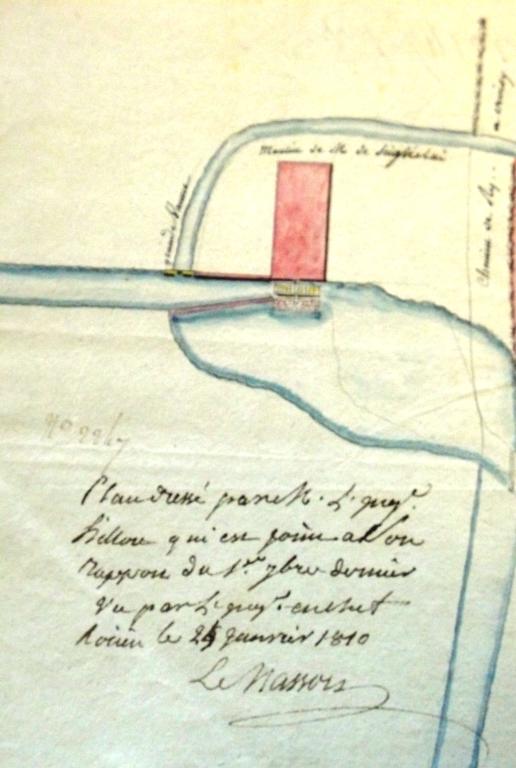 à
Moulin de M de
grande Vanne
Chemin de Ry
No 2267
Plan dressé par M. L'ingr.
Hellou qui est joint a Son
rapport du 1er 7bre dernier
Vu par L'ingr. en chef
Rouen le 24 janvier 1810
Le Masson